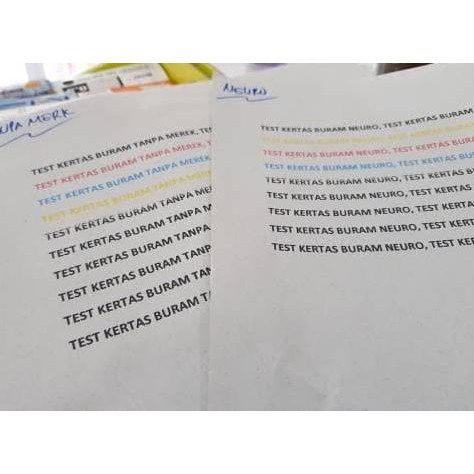 MERK
TEST KERTAS BURAM TANPA MEREK, TE
TEST KERTAS BURAM TANPA MEREK,
TEST KERTAS BURAM TANPA MEREK,
TEST KERTAS BURAM TANPA MER
TEST KERTAS BURAM TANPA ME
TEST KERTAS BURAM TANPA
TEST KERTAS BURAM TANPA
TEST KERTAS BURAM TANP
TEST KERTAS BURAM TAN
TEST KERTAS BURAM T
NEURO
TEST KERTAS BURAM NEURO, TEST KERTAS BURAM
TEST KERTAS BURAM NEURO, TEST KERTAS BURAM
TEST KERTAS BURAM NEURO, TEST KERTAS BURAM
TEST KERTAS BURAM NEURO, TEST KERTAS BURAM
TEST KERTAS BURAM NEURO, TEST KERTAS BURAM
TEST KERTAS BURAM NEURO, TEST KERTAS BURA
TEST KERTAS BURAM NEURO, TEST KERTAS
TEST KERTAS BURAM NEURO, TEST KERTAS
TEST KERTAS BURAM NEURO, TEST KERTAS